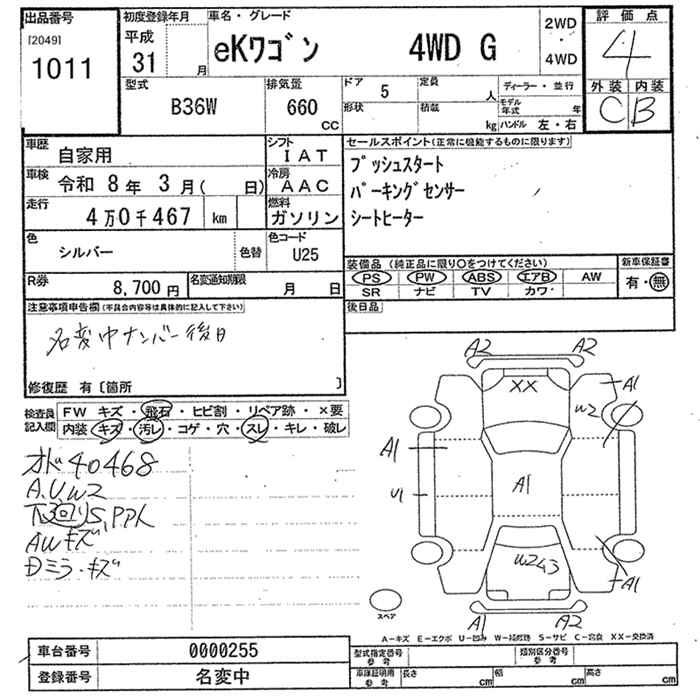 出品番号
[2049]
1011
初度登録年月
平成
31 月
車名・グレード
eKワゴン 4WD G
2WD
・
4WD
評価点
4
外装 内装
C B
型式
B36W
排気量
660 cc
ドア 5
形状
定員 人
積載 kg
ディーラー・並行
モデル年式 年
ハンドル 左・右
車歴
自家用
シフト
IAT
車検
令和 8年 3月( 日)
冷房
AAC
走行
4万0千467 km
燃料
ガソリン
色
シルバー 色替
色コード
U25
R券
8,700円
名変通知期限 月 日
セールスポイント(正常に機能するものに限ります)
プッシュスタート
パーキングセンサー
シートヒーター
装備品 (純正品に限り○をつけてください)
PS PW ABS エアB AW
SR ナビ TV カワ
新車保証書
有・無
後日品
注意事項申告欄(不具合内容等は具体的に記入して下さい)
名変中ナンバー後日
修復歴 有〔箇所 〕
検査員
記入欄
FW キズ・飛石・ヒビ割・リペア跡・×要
内装・キズ・汚レ・コゲ・穴・スレ・キレ・破レ
オド40468
A.UW2
下回りS,Pアト
AWキズ
Dミラーキズ
A2 A2
XX
A1
W2
A1
A1
U1
W2 A3
A1
A1 A2
スペア
A-キズ E-エクボ U-凹み W-補修跡 S-サビ C-腐食 XX-交換済
車台番号 0000255
登録番号 名変中
型式指定番号
参考
類別区分番号
参考
車庫証明用
参考
長さ cm
幅 cm
高さ cm